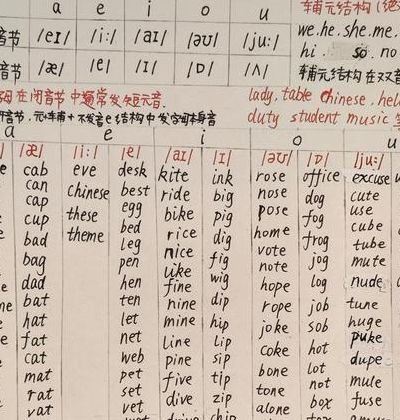 a e i o u
辅元结构
音节 /eɪ/ /i:/ /aɪ/ /əʊ/ /ju:/
we. he. she. me.
hi. so. no
音节 /æ/ /e/ /ɪ/ /ɒ/ /ʌ/
辅元结构 在双音
母在闭音节中通常发短元音.
lady. table chinese. hel
duty student music
a e i o u
/æ/ /i:/ /e/ /aɪ/ /ɪ/ /əʊ/ /ɒ/ /ju:/
cab eve desk kite ink rose office excuse
can chinese best ride big nose dog cute
cap these egg bike pig pose fog use
cup theme bed rice dig home frog cube
bad leg nice fig vote jog tube
bag pen like wig note log mute
dad hen fine dip hope job nude
bat ten nine hip rope sob tune
hat let mine lip joke hot huge
fat net line sip coke lot puke
cat web pine tip bone not dupe
mat pet five zip tone box mule
rat set dive alone fuse
vet